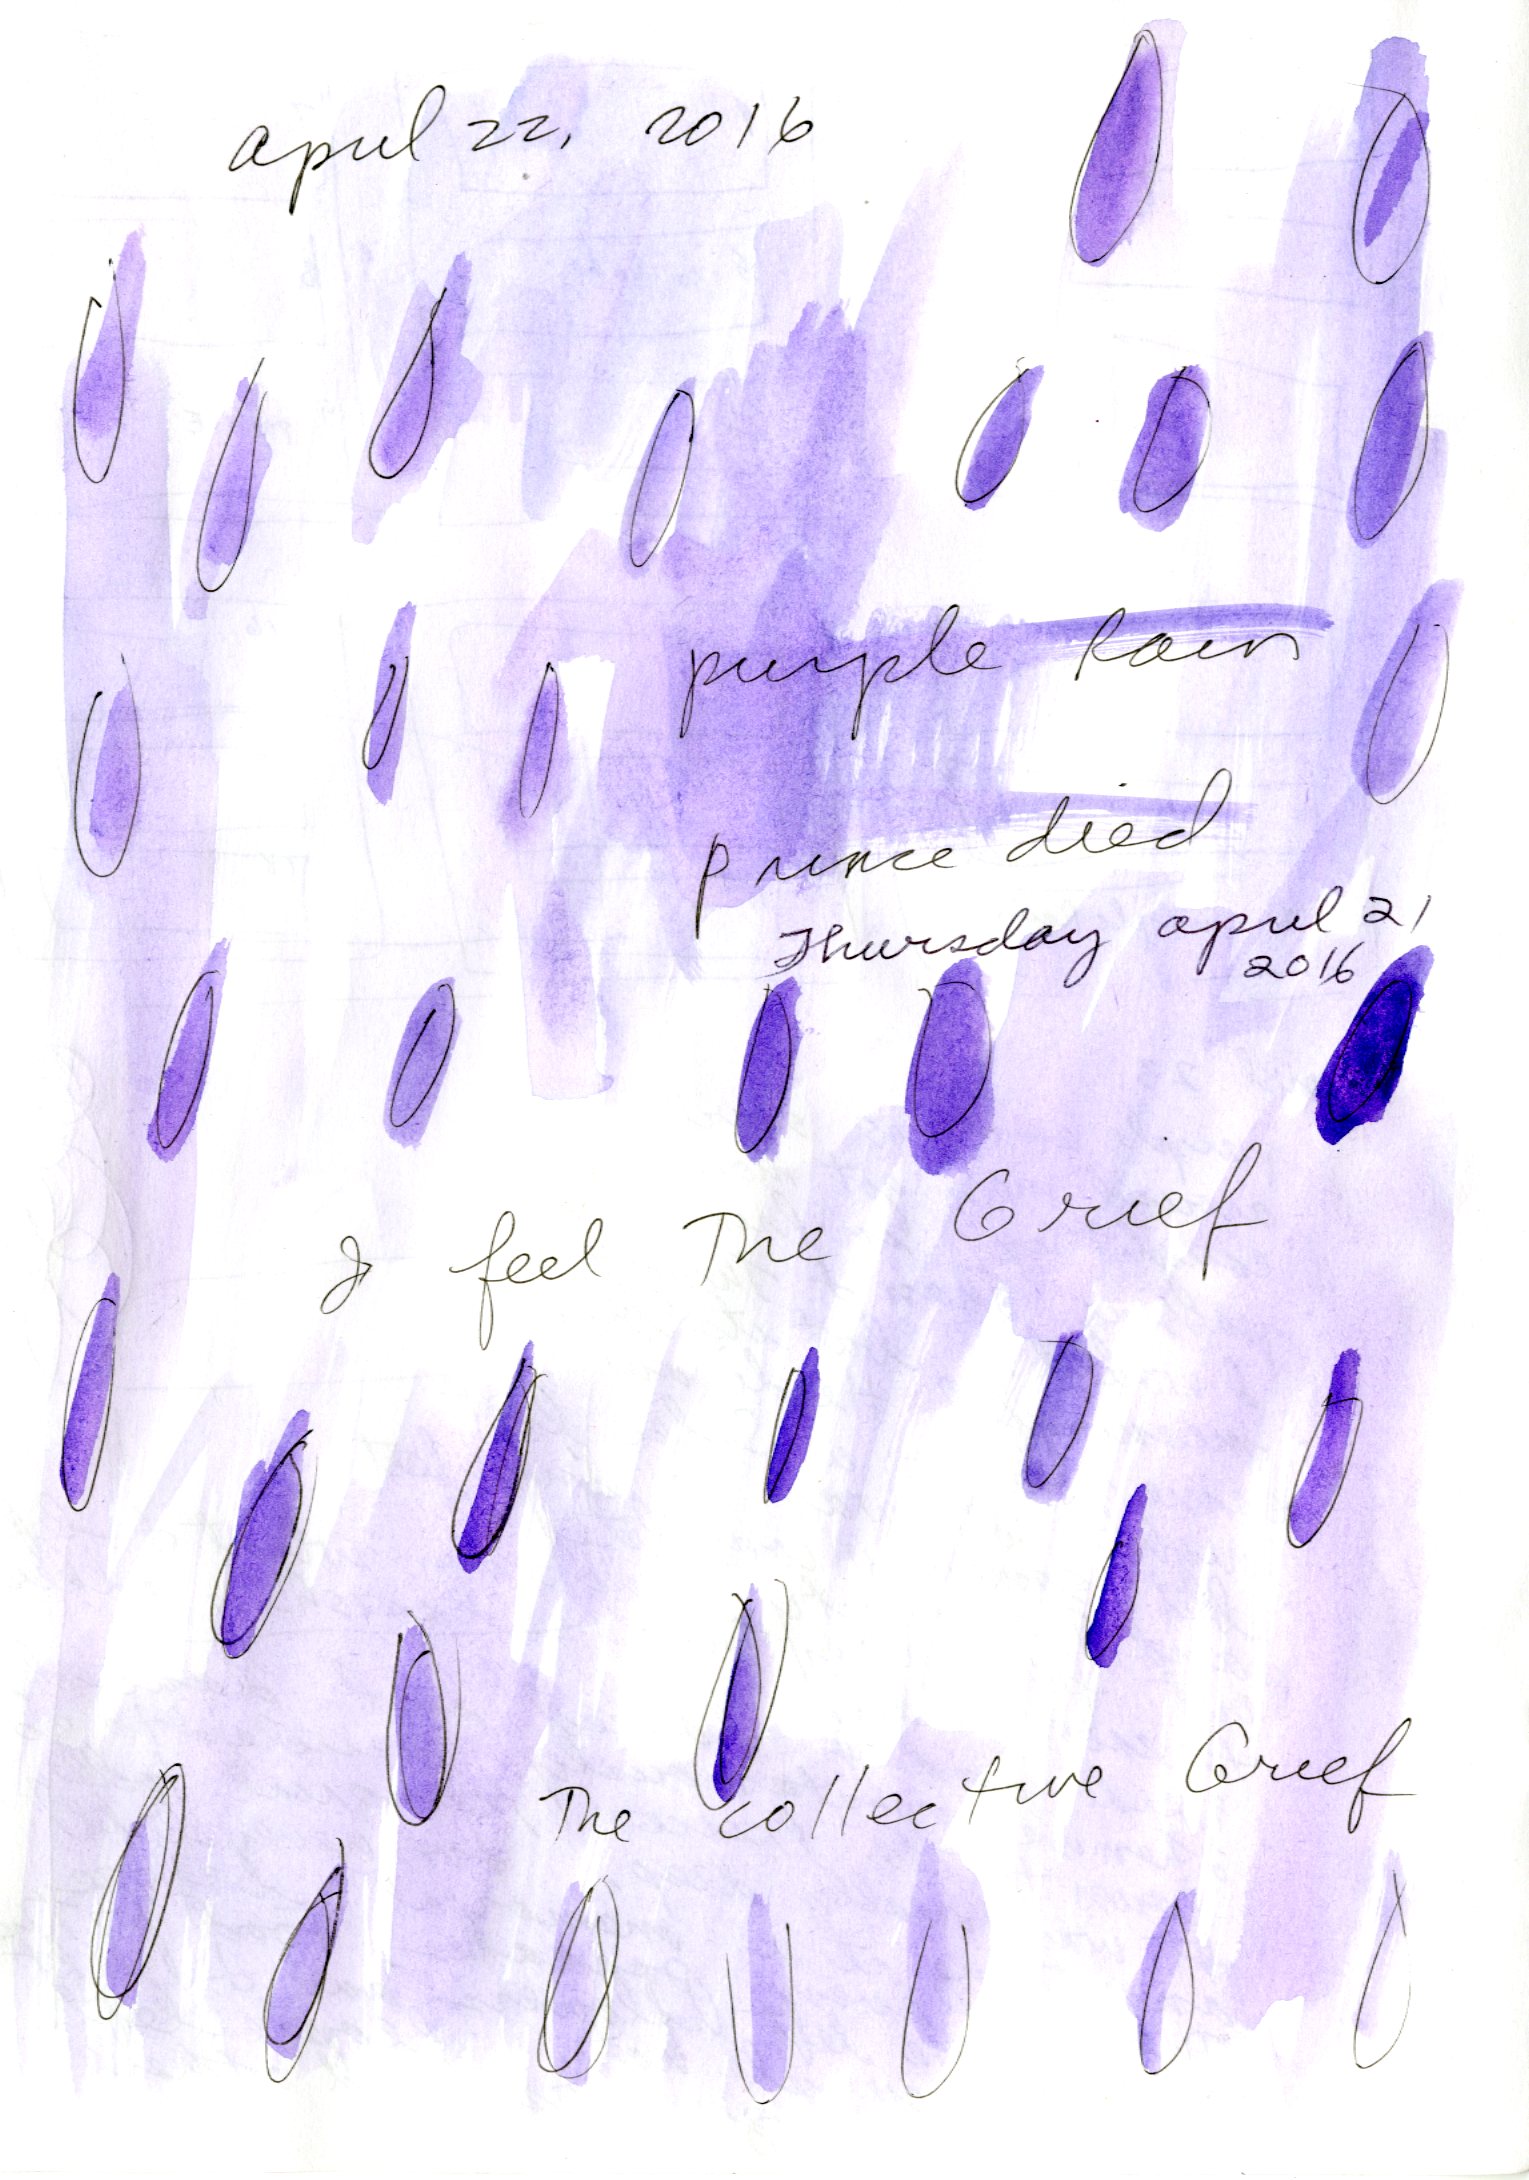 april 22, 2016
purple Rain
prince died
Thursday april 21
2016
I feel The Grief
The collective Grief